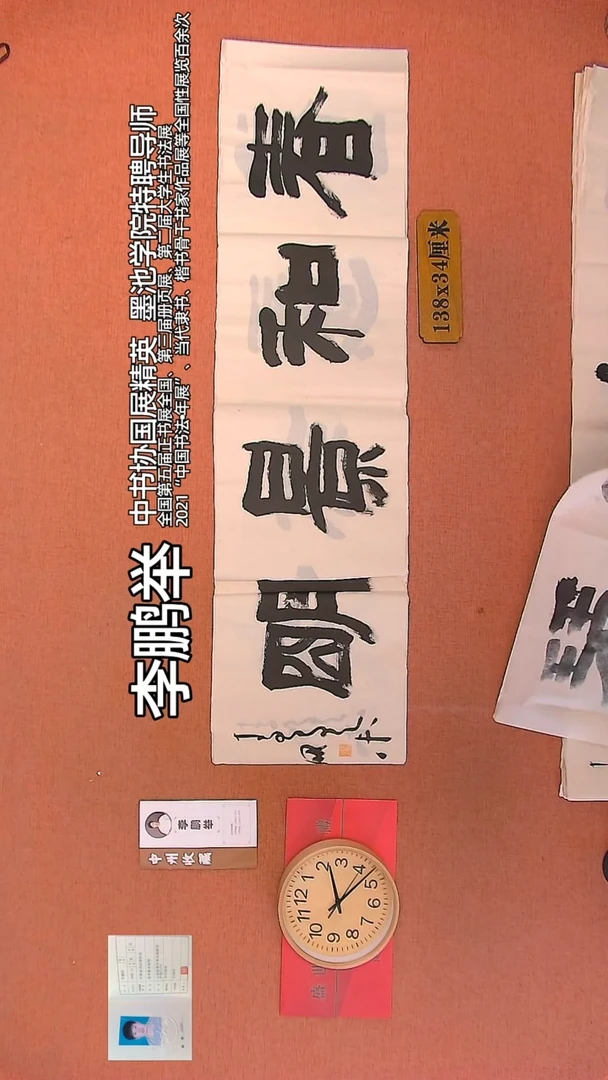 李鹏举
中书协国展精英 墨池学院特聘导师
全国第五届正书展全国、第三届册页展、第二届大学生书法展
2021“中国书法·年展”、当代隶书、楷书骨干书家作品展等全国性展览百余次
春和景明
138x34厘米
李鹏举
中州收藏
12
1
2
3
4
5
6
7
8
9
10
11